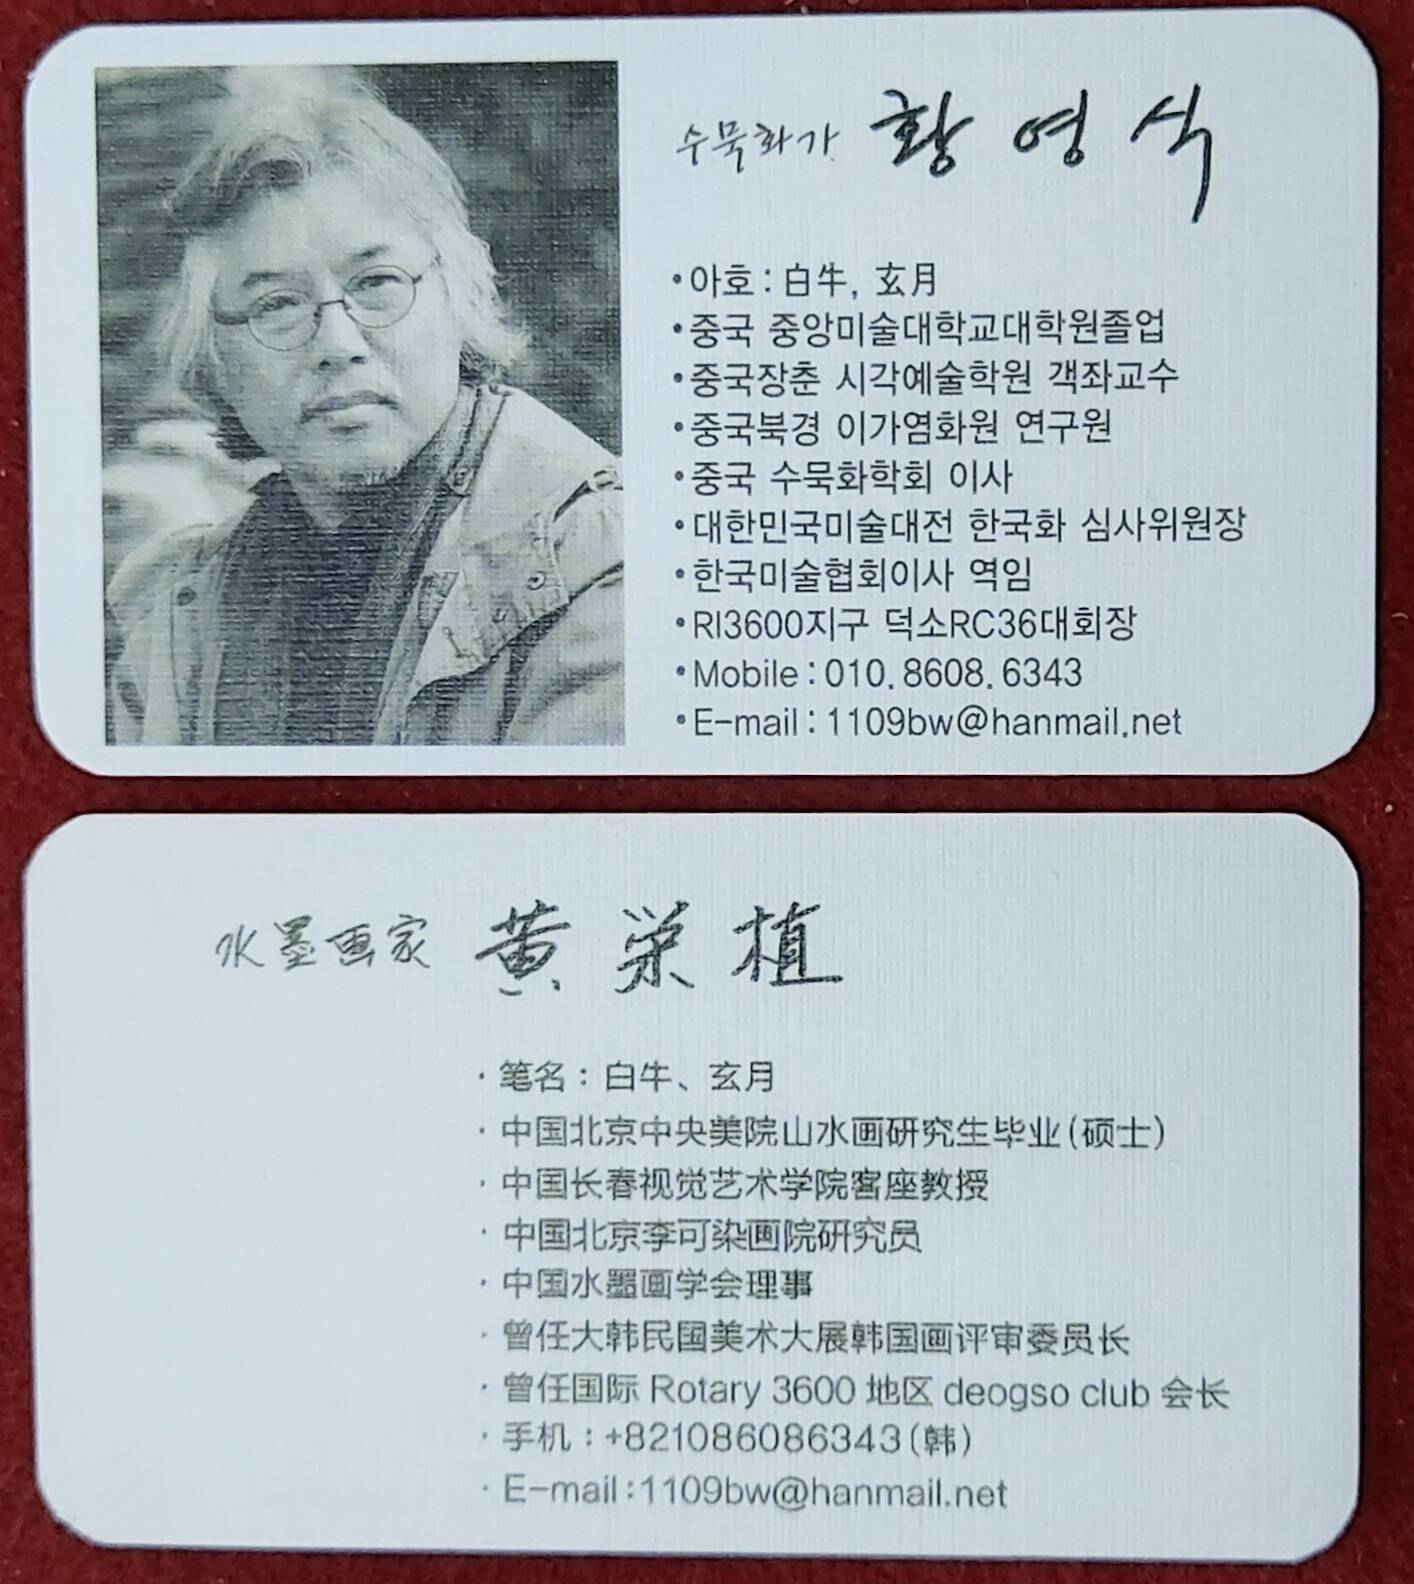 수묵화가 황영식
•아호 : 白牛, 玄月
•중국 중앙미술대학교대학원졸업
•중국장춘 시각예술학원 객좌교수
•중국북경 이가염화원 연구원
•중국 수묵화학회 이사
•대한민국미술대전 한국화 심사위원장
•한국미술협회이사 역임
•RI3600지구 덕소RC36대회장
•Mobile : 010. 8608. 6343
•E-mail : 1109bw@hanmail.net
水墨画家 黄栄植
· 笔名 : 白牛、玄月
· 中国北京中央美院山水画研究生毕业(硕士)
· 中国长春视觉艺术学院客座教授
· 中国北京李可染画院研究员
· 中国水墨画学会理事
· 曾任大韩民国美术大展韩国画评审委员长
· 曾任国际 Rotary 3600 地区 deogso club 会长
· 手机 : +821086086343(韩)
· E-mail :1109bw@hanmail.net